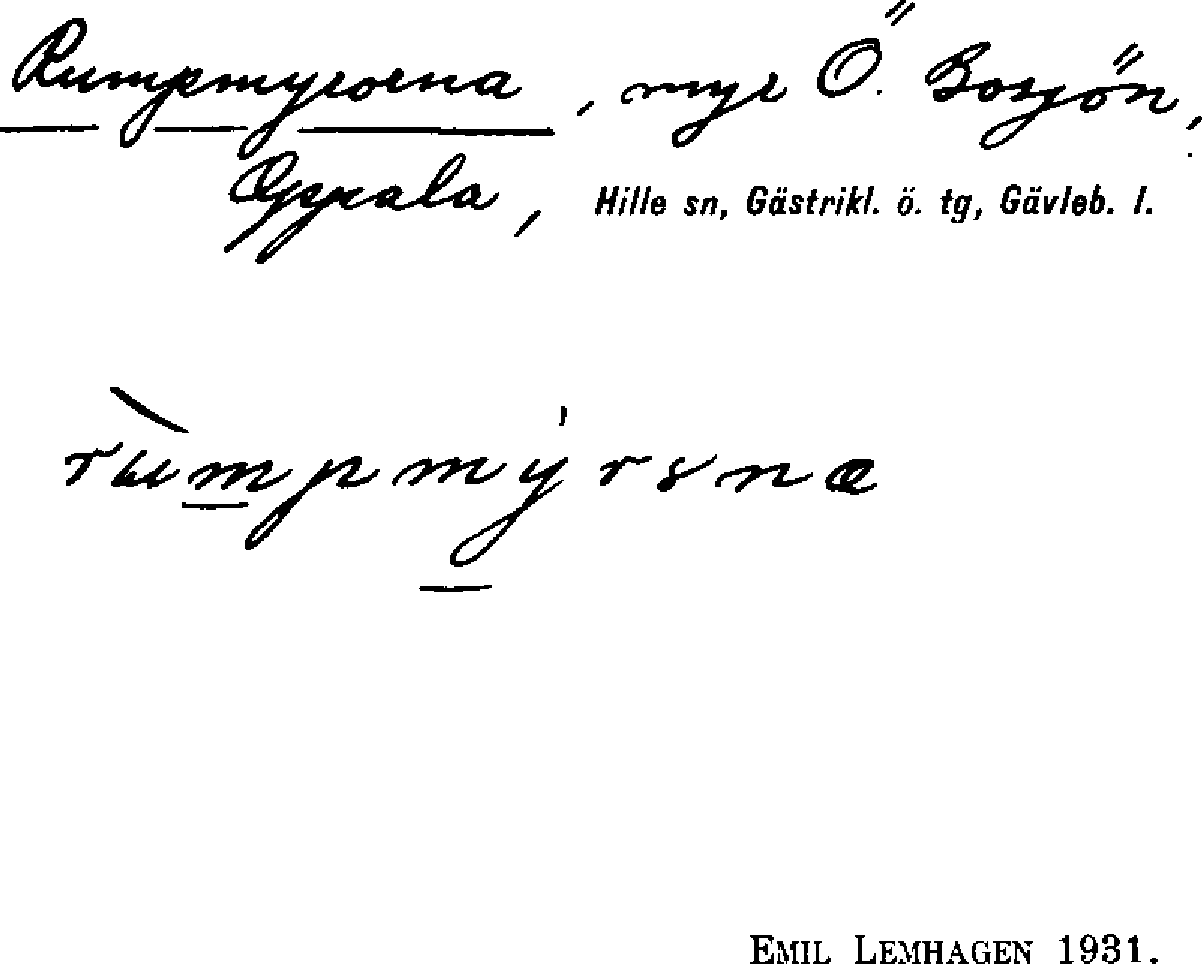 Rumpmyrorna, myr Ö. Bosjön,
Oppala, Hille sn, Gästrikl. ö. tg, Gävleb. l.
rùmpmýrsna
EMIL LEMHAGEN 1931.